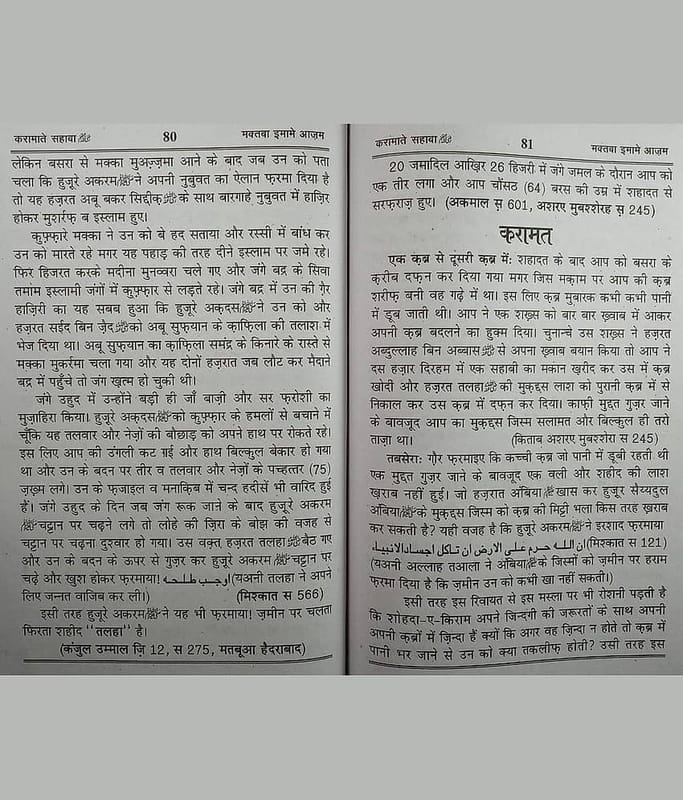 करामाते सहाबा ﷺ 80 मक्तबा इमामे आज़म
लेकिन बसरा से मक्का मुअज़्ज़मा आने के बाद जब उन को पता
चला कि हुजूरे अकरम ﷺ ने अपनी नुबुवत का ऐलान फ़रमा दिया है
तो यह हज़रत अबू बकर सिद्दीक़ के साथ बारगाहे नुबुवत में हाज़िर
होकर मुशर्रफ़ ब इस्लाम हुए।
कुफ़्फ़ारे मक्का ने उन को बे हद सताया और रस्सी में बांध कर
उन को मारते रहे मगर यह पहाड़ की तरह दीने इस्लाम पर जमे रहे।
फिर हिजरत करके मदीना मुनव्वरा चले गए और जंगे बद्र के सिवा
तमाम इस्लामी जंगों में कुफ़्फ़ार से लड़ते रहे। जंगे बद्र में उन की ग़ैर
हाज़िरी का यह सबब हुआ कि हुजूरे अक़दस ﷺ ने उन को और
हज़रत सईद बिन ज़ैद को अबू सुफ़यान के क़ाफ़िला की तलाश में
भेज दिया था। अबू सुफ़यान का क़ाफ़िला समंद्र के किनारे के रास्ते से
मक्का मुकर्रमा चला गया और यह दोनों हज़रात जब लौट कर मैदाने
बद्र में पहुँचे तो जंग ख़त्म हो चुकी थी।
जंगे उहुद में उन्होंने बड़ी ही जाँ बाज़ी और सर फ़रोशी का
मुज़ाहिरा किया। हुजूरे अक़दस ﷺ को कुफ़्फ़ार के हमलों से बचाने में
चूँकि यह तलवार और नेज़ों की बौछाड़ को अपने हाथ पर रोकते रहे।
इस लिए आप की उंगली कट गई और हाथ बिल्कुल बेकार हो गया
था और उन के बदन पर तीर व तलवार और नेज़ों के पच्हत्तर (75)
ज़ख़्म लगे। उन के फ़ज़ाइल व मनाक़िब में चन्द हदीसें भी वारिद हुई
हैं। जंगे उहुद के दिन जब जंग रूक जाने के बाद हुजूरे अकरम
ﷺ चट्टान पर चढ़ने लगे तो लोहे की ज़िरा के बोझ की वजह से
चट्टान पर चढ़ना दुश्वार हो गया। उस वक़्त हज़रत तलहा बैठ गए
और उन के बदन के ऊपर से गुज़र कर हुजूरे अकरम ﷺ चट्टान पर
चढ़े और खुश होकर फ़रमाया! اوجب طلحه (यअनी तलहा ने अपने
लिए जन्नत वाजिब कर ली।) (मिश्कात स 566)
इसी तरह हुजूरे अकरम ﷺ ने यह भी फ़रमाया! ज़मीन पर चलता
फिरता शहीद "तलहा" है।
(कंजुल उम्माल ज़ि 12, स 275, मतबूआ हैदराबाद)
करामाते सहाबा ﷺ 81 मक्तबा इमामे आज़म
20 जमादिल आख़िर 26 हिजरी में जंगे जमल के दौरान आप को
एक तीर लगा और आप चौंसठ (64) बरस की उम्र में शहादत से
सरफराज़ हुए। (अकमाल स 601, अशरए मुबश्शेरह स 245)
करामत
एक क़ब्र से दूसरी क़ब्र में: शहादत के बाद आप को बसरा के
क़रीब दफ़न कर दिया गया मगर जिस मक़ाम पर आप की क़ब्र
शरीफ़ बनी वह गढ़े में था। इस लिए क़ब्र मुबारक कभी कभी पानी
में डूब जाती थी। आप ने एक शख़्स को बार बार ख़्वाब में आकर
अपनी क़ब्र बदलने का हुक्म दिया। चुनान्चे उस शख़्स ने हज़रत
अब्दुल्लाह बिन अब्बास से अपना ख़्वाब बयान किया तो आप ने
दस हज़ार दिरहम में एक सहाबी का मकान ख़रीद कर उस में क़ब्र
खोदी और हज़रत तलहा की मुक़द्दस लाश को पुरानी क़ब्र में से
निकाल कर उस क़ब्र में दफ़न कर दिया। काफ़ी मुद्दत गुज़र जाने
के बावजूद आप का मुक़द्दस जिस्म सलामत और बिल्कुल ही तरो
ताज़ा था। (किताब अशरए मुबश्शेरा स 245)
तबसेरा: ग़ौर फ़रमाइए कि कच्ची क़ब्र जो पानी में डूबी रहती थी
एक मुद्दत गुज़र जाने के बावजूद एक वली और शहीद की लाश
ख़राब नहीं हुई। जो हज़रात अंबिया खास कर हुजूर सैय्यदुल
अंबिया के मुक़द्दस जिस्म को क़ब्र की मिट्टी भला किस तरह ख़राब
कर सकती है? यही वजह है कि हुजूरे अकरम ﷺ ने इरशाद फ़रमाया
ان الله حرم على الارض ان تاكل اجساد الانبياء (मिश्कात स 121)
(यअनी अल्लाह तआला ने अंबिया के जिस्मों को ज़मीन पर हराम
फ़रमा दिया है कि ज़मीन उन को कभी खा नहीं सकती।)
इसी तरह इस रिवायत से इस मस्ला पर भी रोशनी पड़ती है
कि शोहदा-ए-किराम अपने जिन्दगी की जरूरतों के साथ अपनी
अपनी क़ब्रों में ज़िन्दा हैं क्यों कि अगर वह ज़िन्दा न होते तो क़ब्र में
पानी भर जाने से उन को क्या तकलीफ़ होती? उसी तरह इस